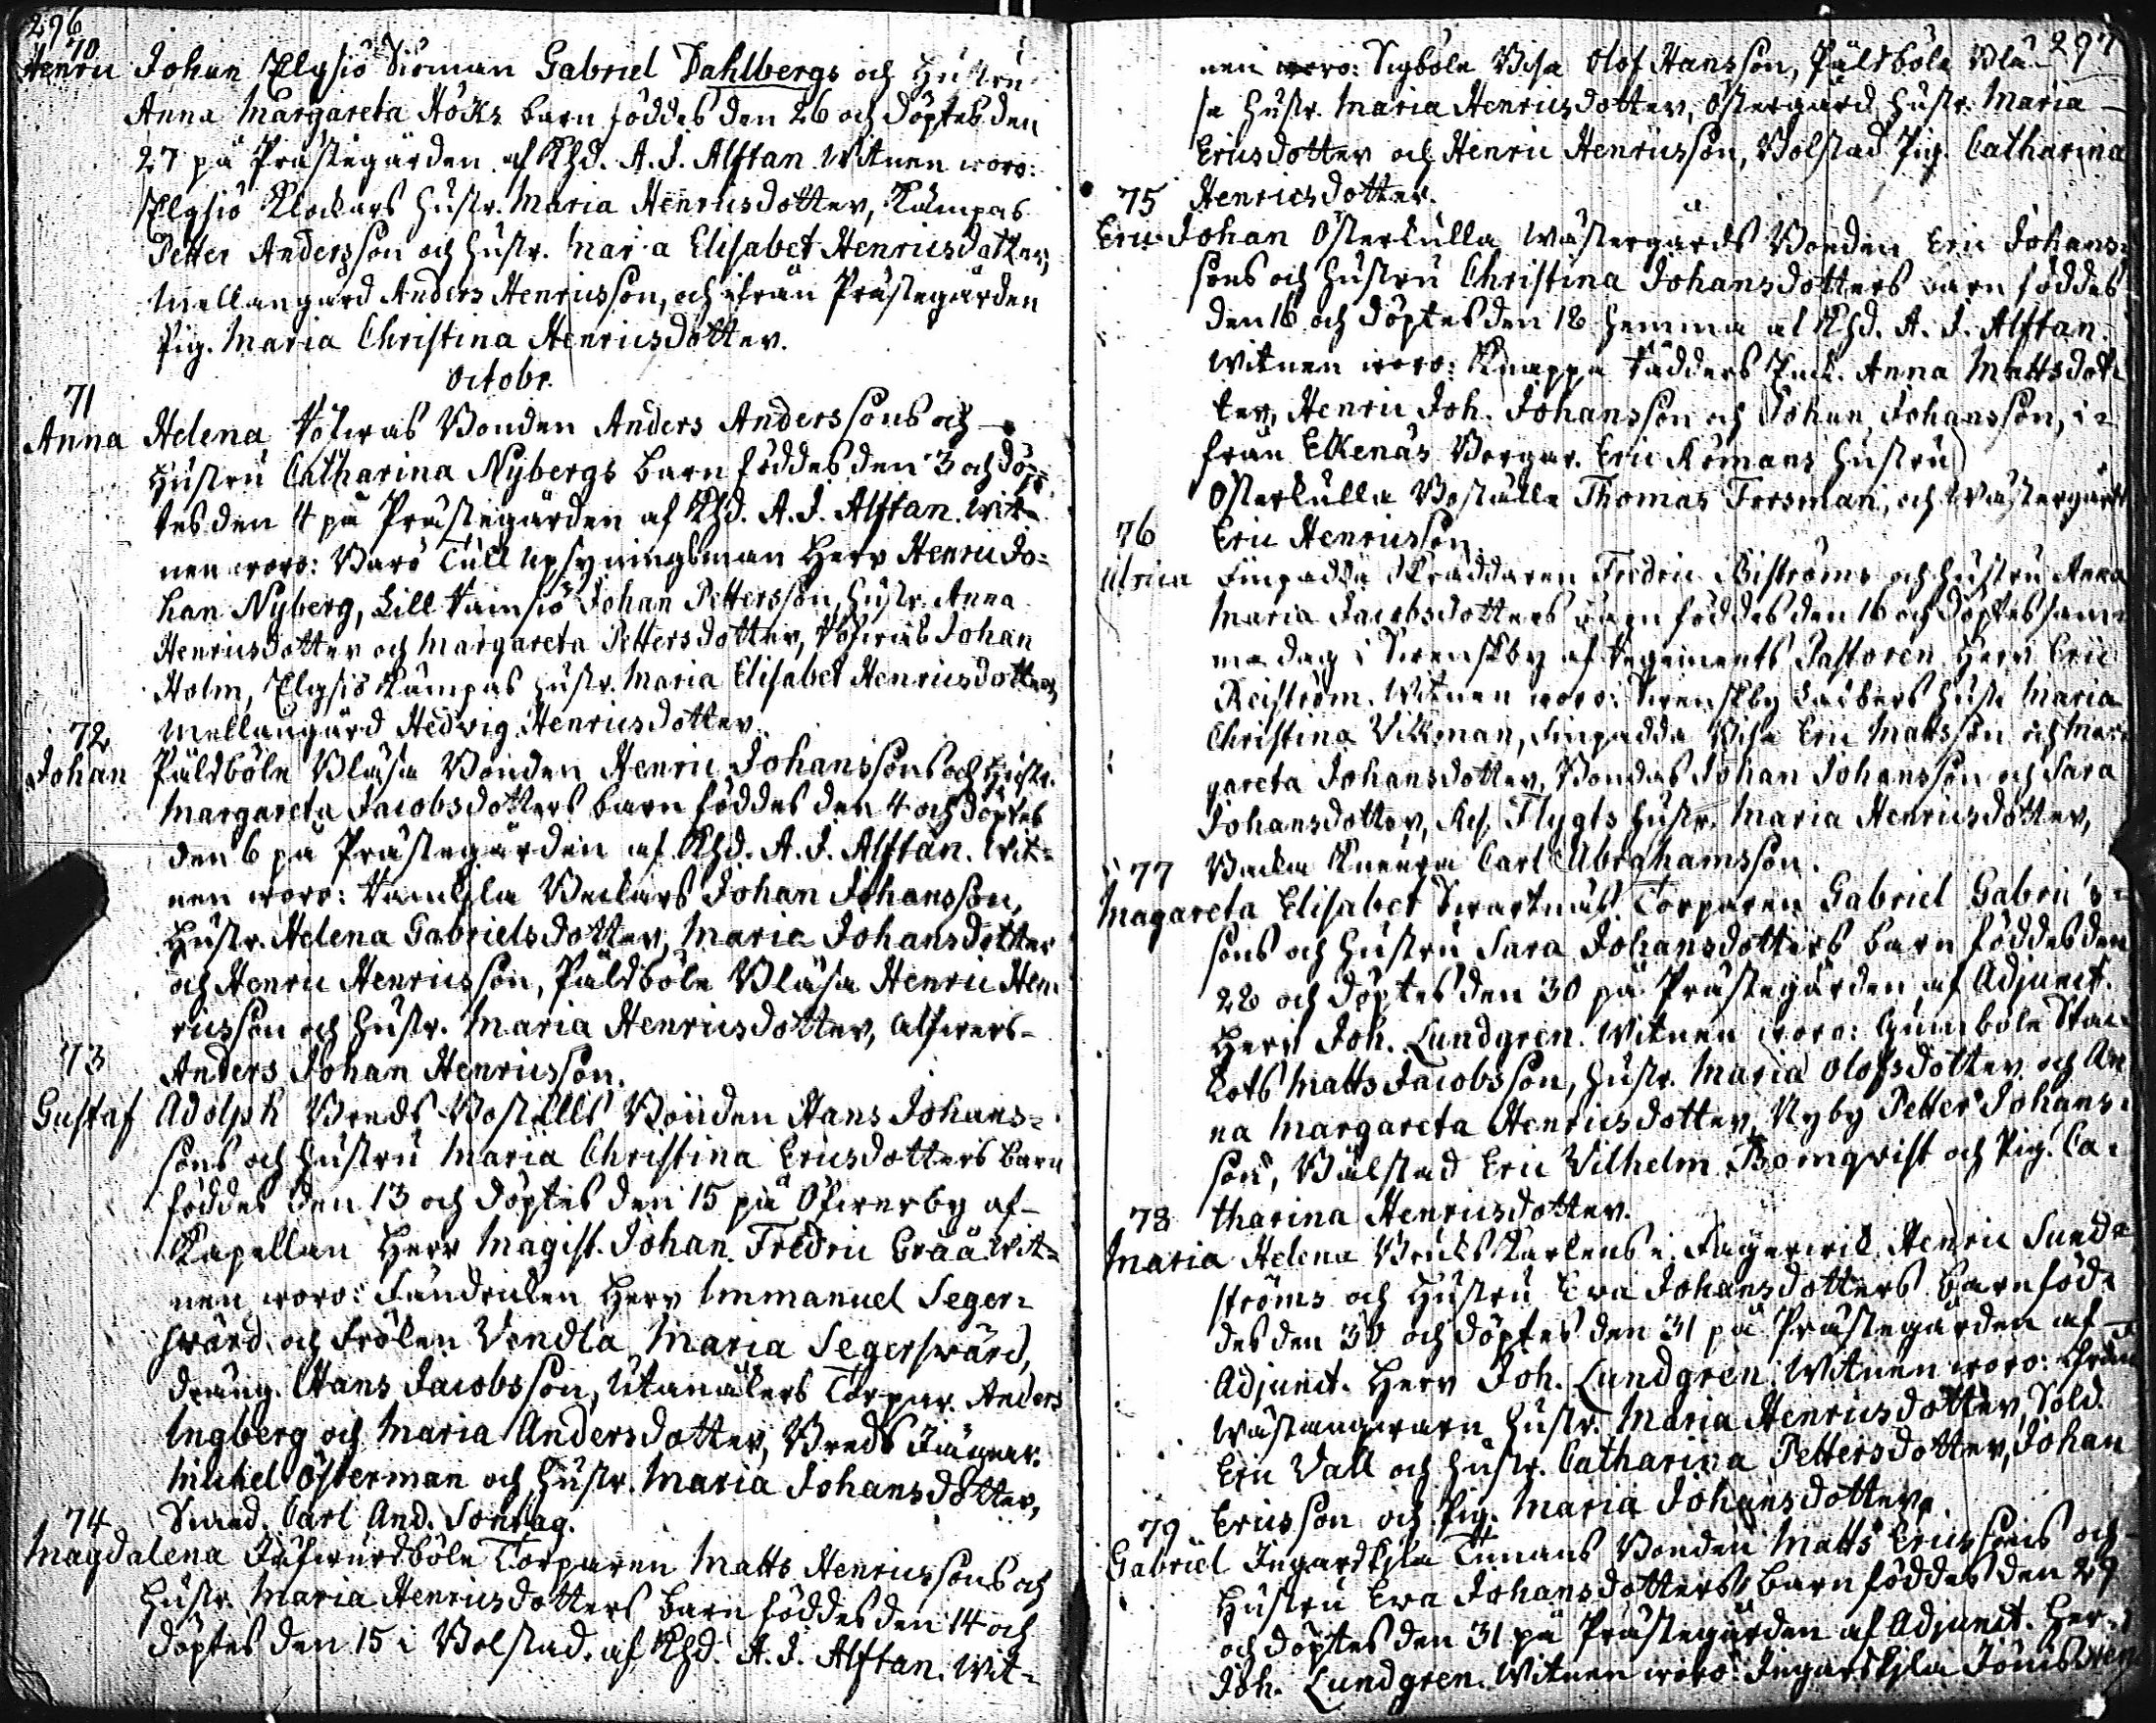 296
70
Henric Johan Elgsiö Gabriel Dahlbergs och Hustru
Anna Margareta Höcks barn föddes den 26 och döptes den
27 på Prästegården af Khd. A. J. Alftan Witnen woro:
Elgsiö Klockars Hustr. Maria Henricsdotter, Kämpas
Petter Andersson och Hustr. Maria Elisabet Henricsdotter,
Mellangård Anders Henricsson, och ifrån Prästegården
Pig. Maria Christina Henricsdotter.
Octobr.
71
Anna Helena Bonden Anders Anderssons och
Hustru Catharina Nybergs barn föddes den 3 och döp-
tes den 4 på Prästegården af Khd. A. J. Alftan. Wit-
nen woro: Barö Tull Upsyningsman Herr Henric Jo-
han Nyberg, Lill Johan Pettersson, Hustr. Anna
Henricsdotter och Margareta Pettersdotter, Johan
Holm, Elgsiö Kämpas Hustr. Maria Elisabet Henricsdotter,
Mellangård Hedvig Henricsdotter.
72
Johan Påldböle Blåsa Bonden Henric Johanssons och Hustr.
Margareta Jacobsdotters barn föddes den 4 och döptes
den 6 på Prästegården af Khd. A. J. Alftan. Wit-
nen woro: Johan Johansson,
Hustr. Helena Gabrielsdotter, Maria Johansdotter
och Henric Henricsson, Påldböle Blåsa Henric Hen-
ricsson och Hustr. Maria Henricsdotter,
73
Anders Johan Henricsson.
Gustaf Adolph Breds Boställs Bonden Hans Johans-
sons och Hustru Maria Christina Ericsdotters barn
föddes den 13 och döptes den 15 på Öfwerby af
Kapellan Herr Magist. Johan Fredric Wit-
nen woro: Fendricken Herr Immanuel Seger-
swärd och Frölen Vendla Maria Segerswärd,
Dräng. Hans Jacobsson, Utanåkers Torpar. Anders
Ingberg och Maria Andersdotter, Breds
Michel Österman och Hustr. Maria Johansdotter,
Carl And. Sontag.
74
Magdalena Torparen Matts Henricssons och
Hustr. Maria Henricsdotters barn föddes den 14 och
döptes den 15 i Bolstad af Khd. A. J. Alftan. Wit-
297
nen woro: Sigböle Wisa Olof Hansson, Påldböle Blå-
sa Hustr. Maria Henricsdotter, Östergård Hustr. Maria
Ericsdotter och Henric Henricsson, Bolstad Pig. Catharina
75 Henricsdotter.
Eric Johan Österkulla Wästergårds Bonden Eric Johans-
sons och Hustru Christina Johansdotters barn föddes
den 16 och döptes den 18 hemma af Khd. A. J. Alftan.
Witnen woro: Enck. Anna Mattsdot-
ter, Henric Joh. Johansson och Johan Johansson, i-
från Ekenäs Borgar. Eric Romans Hustru
Österkulla Boställe Thomas Forsman, och Wästergård
76 Eric Henricsson.
Ulrica Finpadda Skräddaren Fredric Biströms och Hustru Anna
Maria Jacobsdotters barn föddes den 16 och döptes sam-
ma dag i Swenskby af Regements Pastoren Herr Eric
Reiström. Witnen woro: Swenskby Hustr. Maria
Christina Vikman, Finpadda Wisa Eric Mattsson och Mar-
gareta Johansdotter, Bondas Johan Johansson och Sara
Johansdotter, Flygts Hustr. Maria Henricsdotter,
77 Carl Abrahamsson.
Magareta Elisabet Swartnäs Torparen Gabriel Gabriels-
sons och Hustru Sara Johansdotters barn föddes den
28 och döptes den 30 på Prästegården af Adjunct.
Herr Joh. Lundgren. Witnen woro: Gumböle
Matts Jacobsson, Hustr. Maria Olofsdotter och An-
na Margareta Henricsdotter, Nyby Petter Johans-
son, Bålstad Eric Vilhelm Bomqvist och Pig. Ca-
78 tharina Henricsdotter.
Maria Helena Bruks Karlens i Fagerwik Henric Sund-
ströms och Hustru Ewa Johansdotters barn föd-
des den 30 och döptes den 31 på Prästegården af
Adjunct. Herr Joh. Lundgren. Witnen woro:
Hustr. Maria Henricsdotter, Sold.
Eric Vall och Hustr. Catharina Pettersdotter, Johan
Ericsson och Pig. Maria Johansdotter.
79
Gabriel Ingarskila Bonden Matts Ericssons och
Hustru Ewa Johansdotters barn föddes den 29
och döptes den 31 på Prästegården af Adjunct. Herr
Joh. Lundgren. Witnen woro: Ingarskila